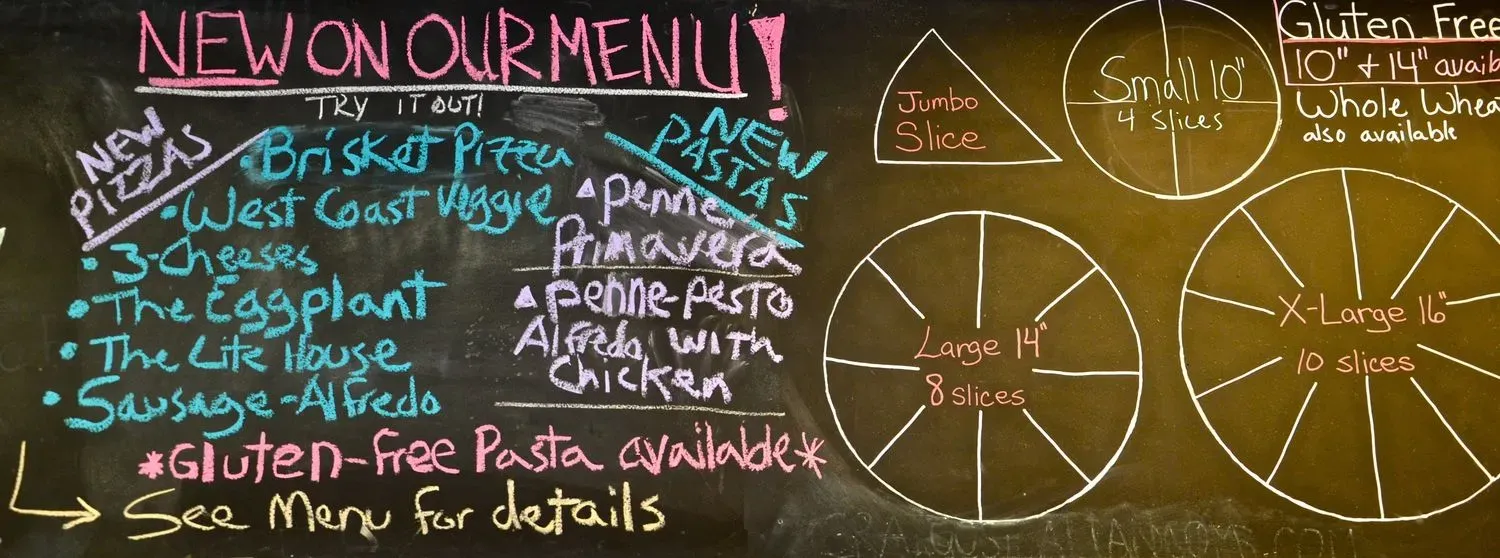 NEW ON OUR MENU!
TRY IT OUT!
NEW
PIZZAS
• Brisket Pizza
• West Coast Veggie
• 3-Cheeses
• The Eggplant
• The Lite House
• Sausage-Alfredo
NEW
PASTAS
▲ Penne
Primavera
▲ Penne-Pesto
Alfredo with
Chicken
*Gluten-Free Pasta available*
See Menu for details
Jumbo
Slice
Small 10"
4 slices
Gluten Free
10" + 14" availab
Whole Wheat
also available
Large 14"
8 slices
X-Large 16"
10 slices